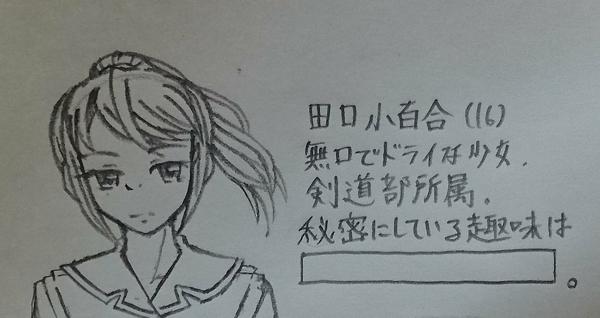 田口小百合(16)
無口でドライな少女.
剣道部所属.
秘密にしている趣味は
。